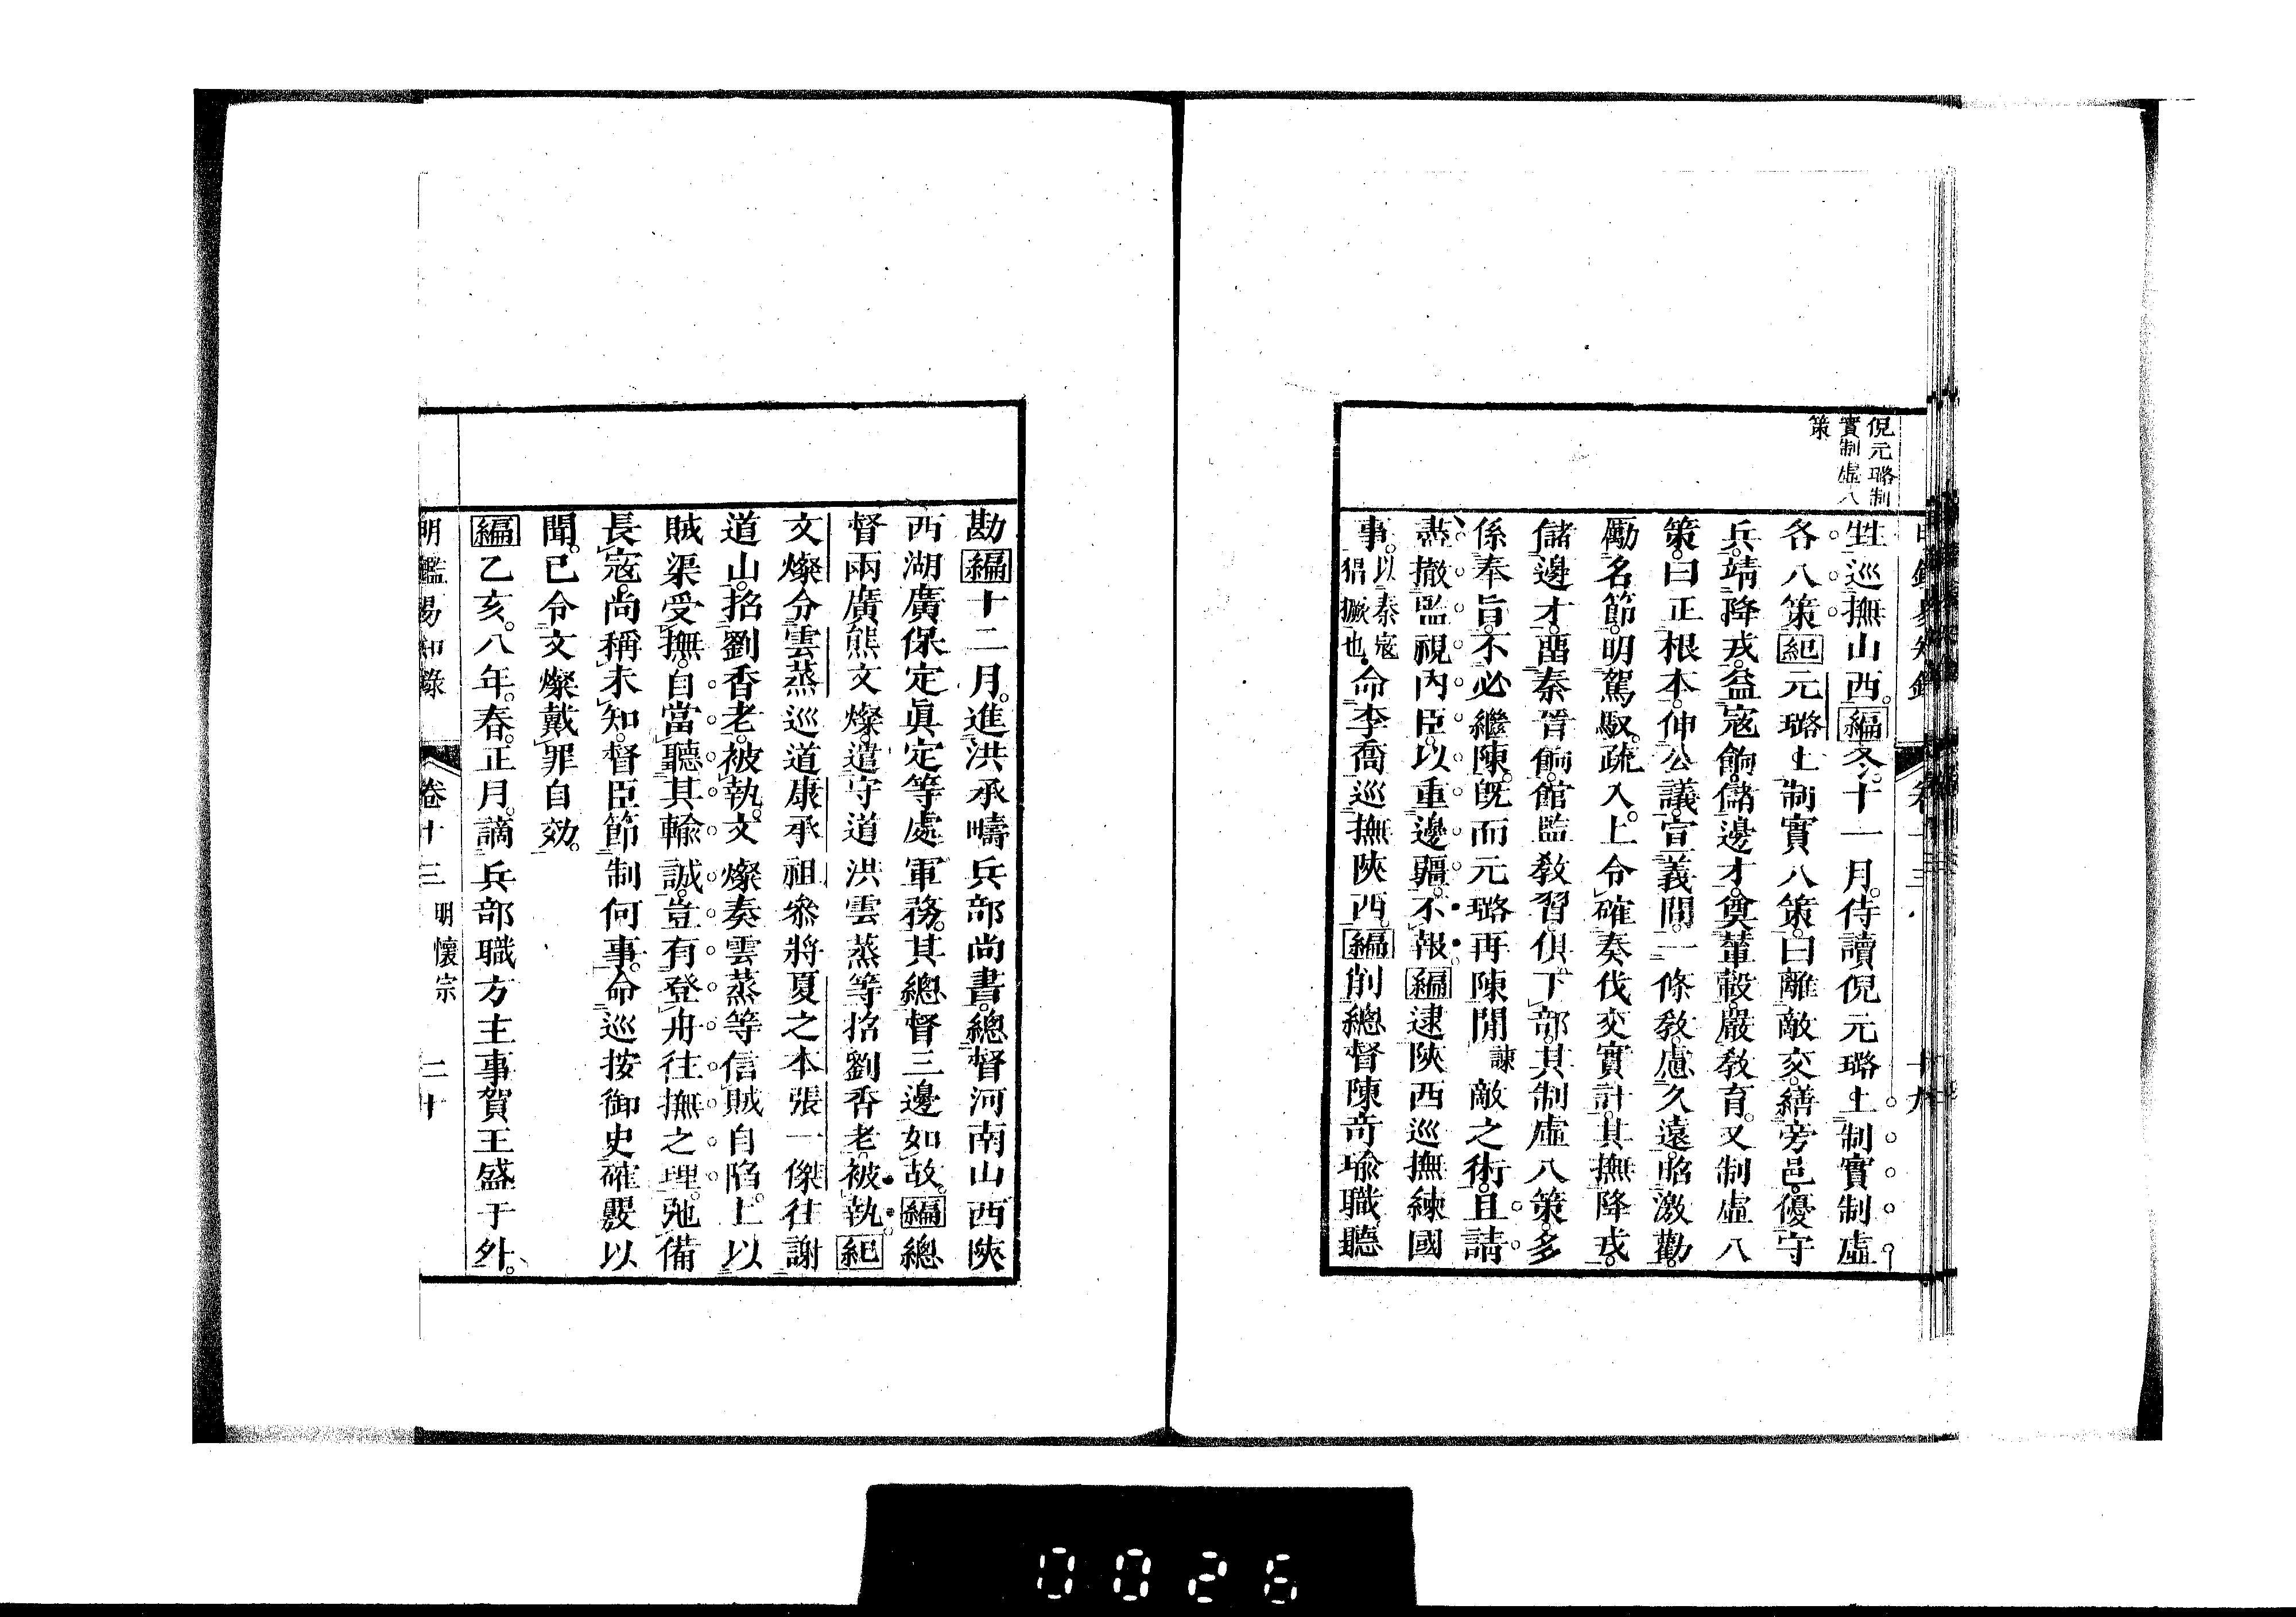 倪元璐制
實制虛八
策
甡巡撫山西。編冬。十一月。侍讀倪元璐上制實制虛
各八策。紀元璐上制實八策。曰離敵交。繕旁邑。優守
兵。靖降戎。益寇餉。儲邊才。奠輦轂。嚴教育。又制虛八
策。曰正根本。伸公議。宣義問。一條教。慮久遠。昭激勸。
勵名節。明駕馭。疏入。上令確奏伐交實計。其撫降戎。
儲邊才。畱秦晉餉。館監教習。俱下部。其制虛八策。多
係奉旨。不必繼陳。旣而元璐再陳閒諫敵之術。且請
盡撤監視內臣。以重邊疆。不報。編逮陝西巡撫練國
事。以秦寇
猖獗也命李喬巡撫陝西。編削總督陳奇瑜職聽
勘編十二月。進洪承疇兵部尚書。總督河南山西陝
西湖廣保定眞定等處軍務。其總督三邊如故。編總
督兩廣熊文燦。遣守道洪雲蒸等招劉香老。被執。紀
文燦分雲蒸巡道康承祖參將夏之本張一傑往謝
道山。招劉香老。被執。文燦奏雲蒸等信賊自陷。上以
賊渠受撫。自當聽其輸誠。豈有登舟往撫之理。弛備
長寇。尚稱未知。督臣節制何事。命巡按御史確覈以
聞。已令文燦戴罪自効。
編乙亥。八年。春。正月。謫兵部職方主事賀王盛于外。
明鑑易知錄 卷十三 明懷宗 二十